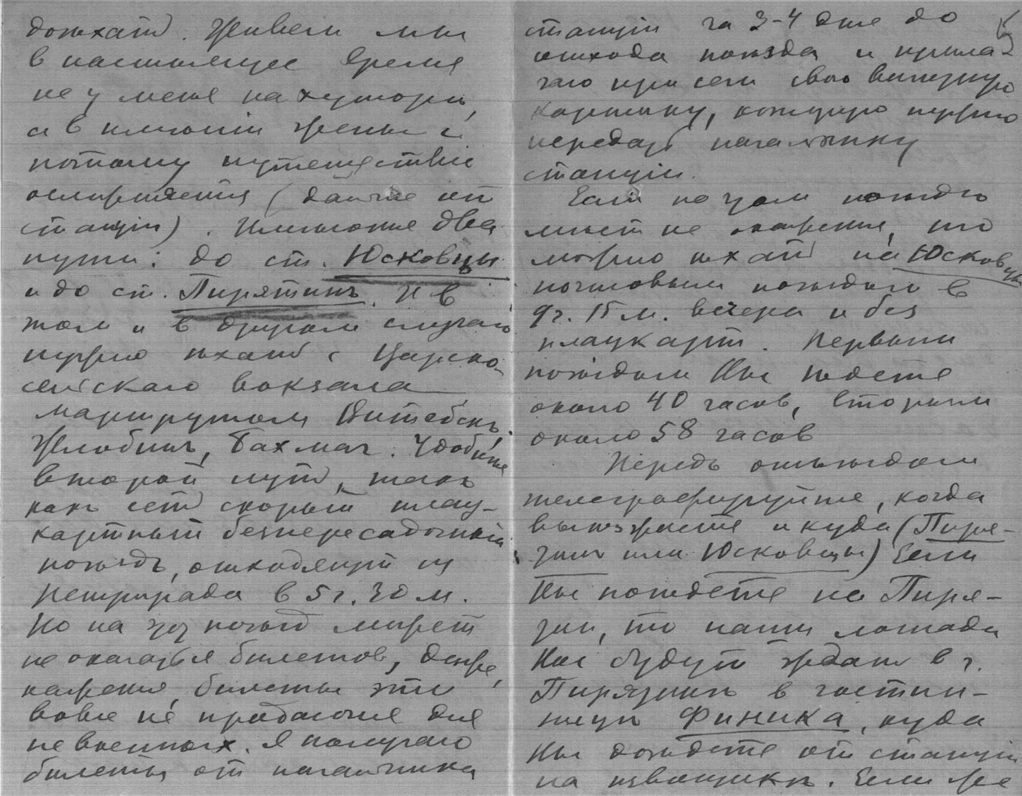 доѣхать. Живемъ мы
въ настоящее время
не у меня на хуторѣ,
а въ имѣніи жены и
потому путешествіе
осложняется (дальше отъ
станціи). Имѣются два
пути: до ст. Юсковцы
и до ст. Пирятинъ. И въ
томъ и въ другомъ случаѣ
нужно ѣхать съ Царско-
сельскаго вокзала
маршрутомъ Витебскъ,
Жлобинъ, Бахмачъ. Удобнѣе
второй путь, такъ
какъ есть скорый плац-
картный безпересадочный
поѣздъ, отходящій изъ
Петрограда в 5 г. 30 м.
Но на этотъ поѣздъ можетъ
не оказаться билетовъ,
кажется, билеты эти
вовсе не продаются для
не военныхъ. Я получаю
билеты отъ начальника
станціи за 3-4 дня до
отхода поѣзда и прила-
гаю при семъ свою визитную
карточку, которую нужно
передать начальнику
станціи.
Если на этомъ поѣздѣ
мѣстъ не окажется, то
можно ѣхать на Юсковцы
почтовымъ поѣздомъ в
9 г. 15 м. вечера и безъ
плацкартъ. Первымъ
поѣздомъ Вы ѣдете
около 40 часовъ, вторымъ
около 58 часовъ
Передъ отъѣздомъ
телеграфируйте, когда
выѣзжаете и куда (Пиря-
тинъ или Юсковцы) Если
Вы поѣдете на Пиря-
тинъ, то наши лошади
Васъ будутъ ждать в г.
Пирятинѣ в гостин-
ницѣ Финика, куда
Вы доѣдете отъ станціи
на извощикѣ. Если же